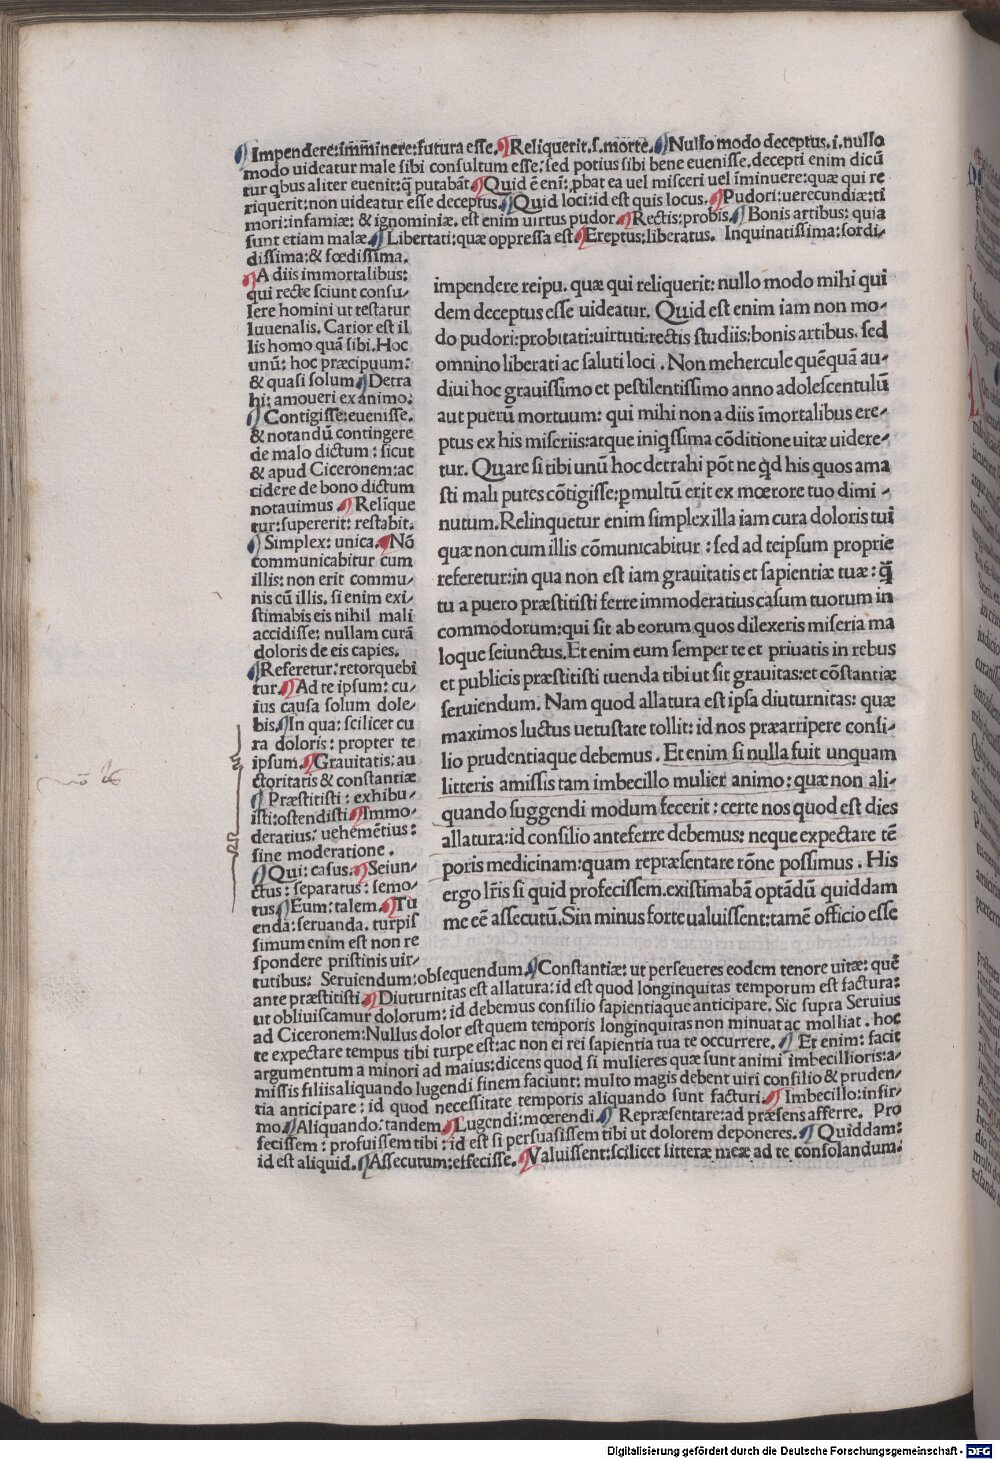 ¶ Impendere:īm̄minere:futura esse.¶Reliquerit.s.morte.¶Nullo modo deceptus.i.nullo
modo uideatur male sibi consultum esse:sed potius sibi bene euenisse.decepti enim dicū
tur qbus aliter euenit:q̄ putabāt.¶Quid ē eni: ꝓbat ea uel misceri uel īminuere:quæ qui re
riquerit:non uideatur esse deceptus.¶Quid loci:id est quis locus.¶Pudori:uerecundiæ:ti
mori:infamiæ: & ignominiæ. est enim uirtus pudor.¶Rectis:probis.¶Bonis artibus: quia
sunt etiam malæ.¶ Libertati:quæ oppressa est.¶Ereptus:liberatus. Inquinatissima:sordi-
dissima:& fœdissima.
¶A diis immortalibus:
qui recte sciunt consu-
lere homini ut testatur
Iuuenalis. Carior est il
lis homo quā sibi. Hoc
unū: hoc præcipuum:
& quasi solum.¶Detra
hi: amoueri ex animo:
¶Contigisse:euenisse.
& notandū contingere
de malo dictum : sicut
& apud Ciceronem:ac
cidere de bono dictum
notauimus ¶Relique
tur:supererit: restabit.
¶Simplex: unica.¶Nō
communicabitur cum
illis: non erit commu-
nis cū illis. si enim exi-
stimabis eis nihil mali
accidisse: nullam curā
doloris de eis capies.
¶Referetur: retorquebi
tur.¶Ad te ipsum: cu-
ius causa solum dole-
bis.¶In qua: scilicet cu
ra doloris: propter te
ipsum.¶Grauitatis: au
ctoritatis & constantiæ
¶Præstitisti : exhibu-
isti:ostendisti.¶Immo-
deratius: uehemētius:
sine moderatione .
¶Qui: casus.¶Seiun-
ctus: separatus: semo-
tus.¶Eum: talem.¶Tu
enda: seruanda. turpis
simum enim est non re
spondere pristinis uir-
impendere reipu. quæ qui reliquerit: nullo modo mihi qui
dem deceptus esse uideatur. Quid est enim iam non mo-
do pudori:probitati:uirtuti:rectis studiis:bonis artibus. sed
omnino liberati ac saluti loci . Non mehercule quēquā au-
diui hoc grauissimo et pestilentissimo anno adolescentulū
aut puerū mortuum: qui mihi non a diis īmortalibus ere-
ptus ex his miseriis:atque iniqssima cōditione uitæ uidere-
tur. Quare si tibi unū hoc detrahi pōt ne qd his quos ama
sti mali putes cōtigisse:ꝑmultū erit ex mœrore tuo dimi -
nutum.Relinquetur enim simplex illa iam cura doloris tui
quæ non cum illis cōmunicabitur : sed ad teipsum proprie
referetur:in qua non est iam grauitatis et sapientiæ tuæ: q̄
tu a puero præstitisti ferre immoderatius casum tuorum in
commodorum:qui sit ab eorum quos dilexeris miseria ma
loque seiunctus.Et enim eum semper te et priuatis in rebus
et publicis præstitisti tuenda tibi ut sit grauitas:et cōstantiæ
seruiendum. Nam quod allatura est ipsa diuturnitas: quæ
maximos luctus uetustate tollit: id nos præarripere consi-
lio prudentiaque debemus . Et enim si nulla fuit unquam
litteris amissis tam imbecillo mulier animo: quæ non ali-
quando suggendi modum fecerit : certe nos quod est dies
allatura:id consilio anteferre debemus: neque expectare tē
poris medicinam:quam repræsentare rōne possimus . His
ergo lr̄is si quid profecissem.existimabā optādū quiddam
me eē assecutū.Sin minus forte ualuissent:tamē officio esse
tutibus: Seruiendum:obsequendum.¶Constantiæ: ut perseueres eodem tenore uitæ: quē
ante præstitisti.¶Diuturnitas est allatura: id est quod longinquitas temporum est factura:
ut obliuiscamur dolorum: id debemus consilio sapientiaque anticipare. Sic supra Seruius
ad Ciceronem:Nullus dolor est quem temporis longinquitas non minuat ac molliat . hoc
te expectare tempus tibi turpe est:ac non ei rei sapientia tua te occurrere.¶ Et enim: facit
argumentum a minori ad maius:dicens quod si mulieres quæ sunt animi imbecillioris:a-
missis filiis aliquando lugendi finem faciunt: multo magis debent uiri consilio & pruden-
tia anticipare : id quod necessitate temporis aliquando sunt facturi.¶ Imbecillo:infir-
mo.¶Aliquando: tandem.¶Lugendi: mœrendi.¶ Repræsentare: ad præsens afferre. Pro
fecissem : profuissem tibi : id est si persuasissem tibi ut dolorem deponeres.¶ Quiddam:
id est aliquid.¶Assecutum:effecisse.¶Valuissent:scilicet litteræ meæ ad te consolandum.
Digitalisierung gefördert durch die Deutsche Forschungsgemeinschaft - DFG